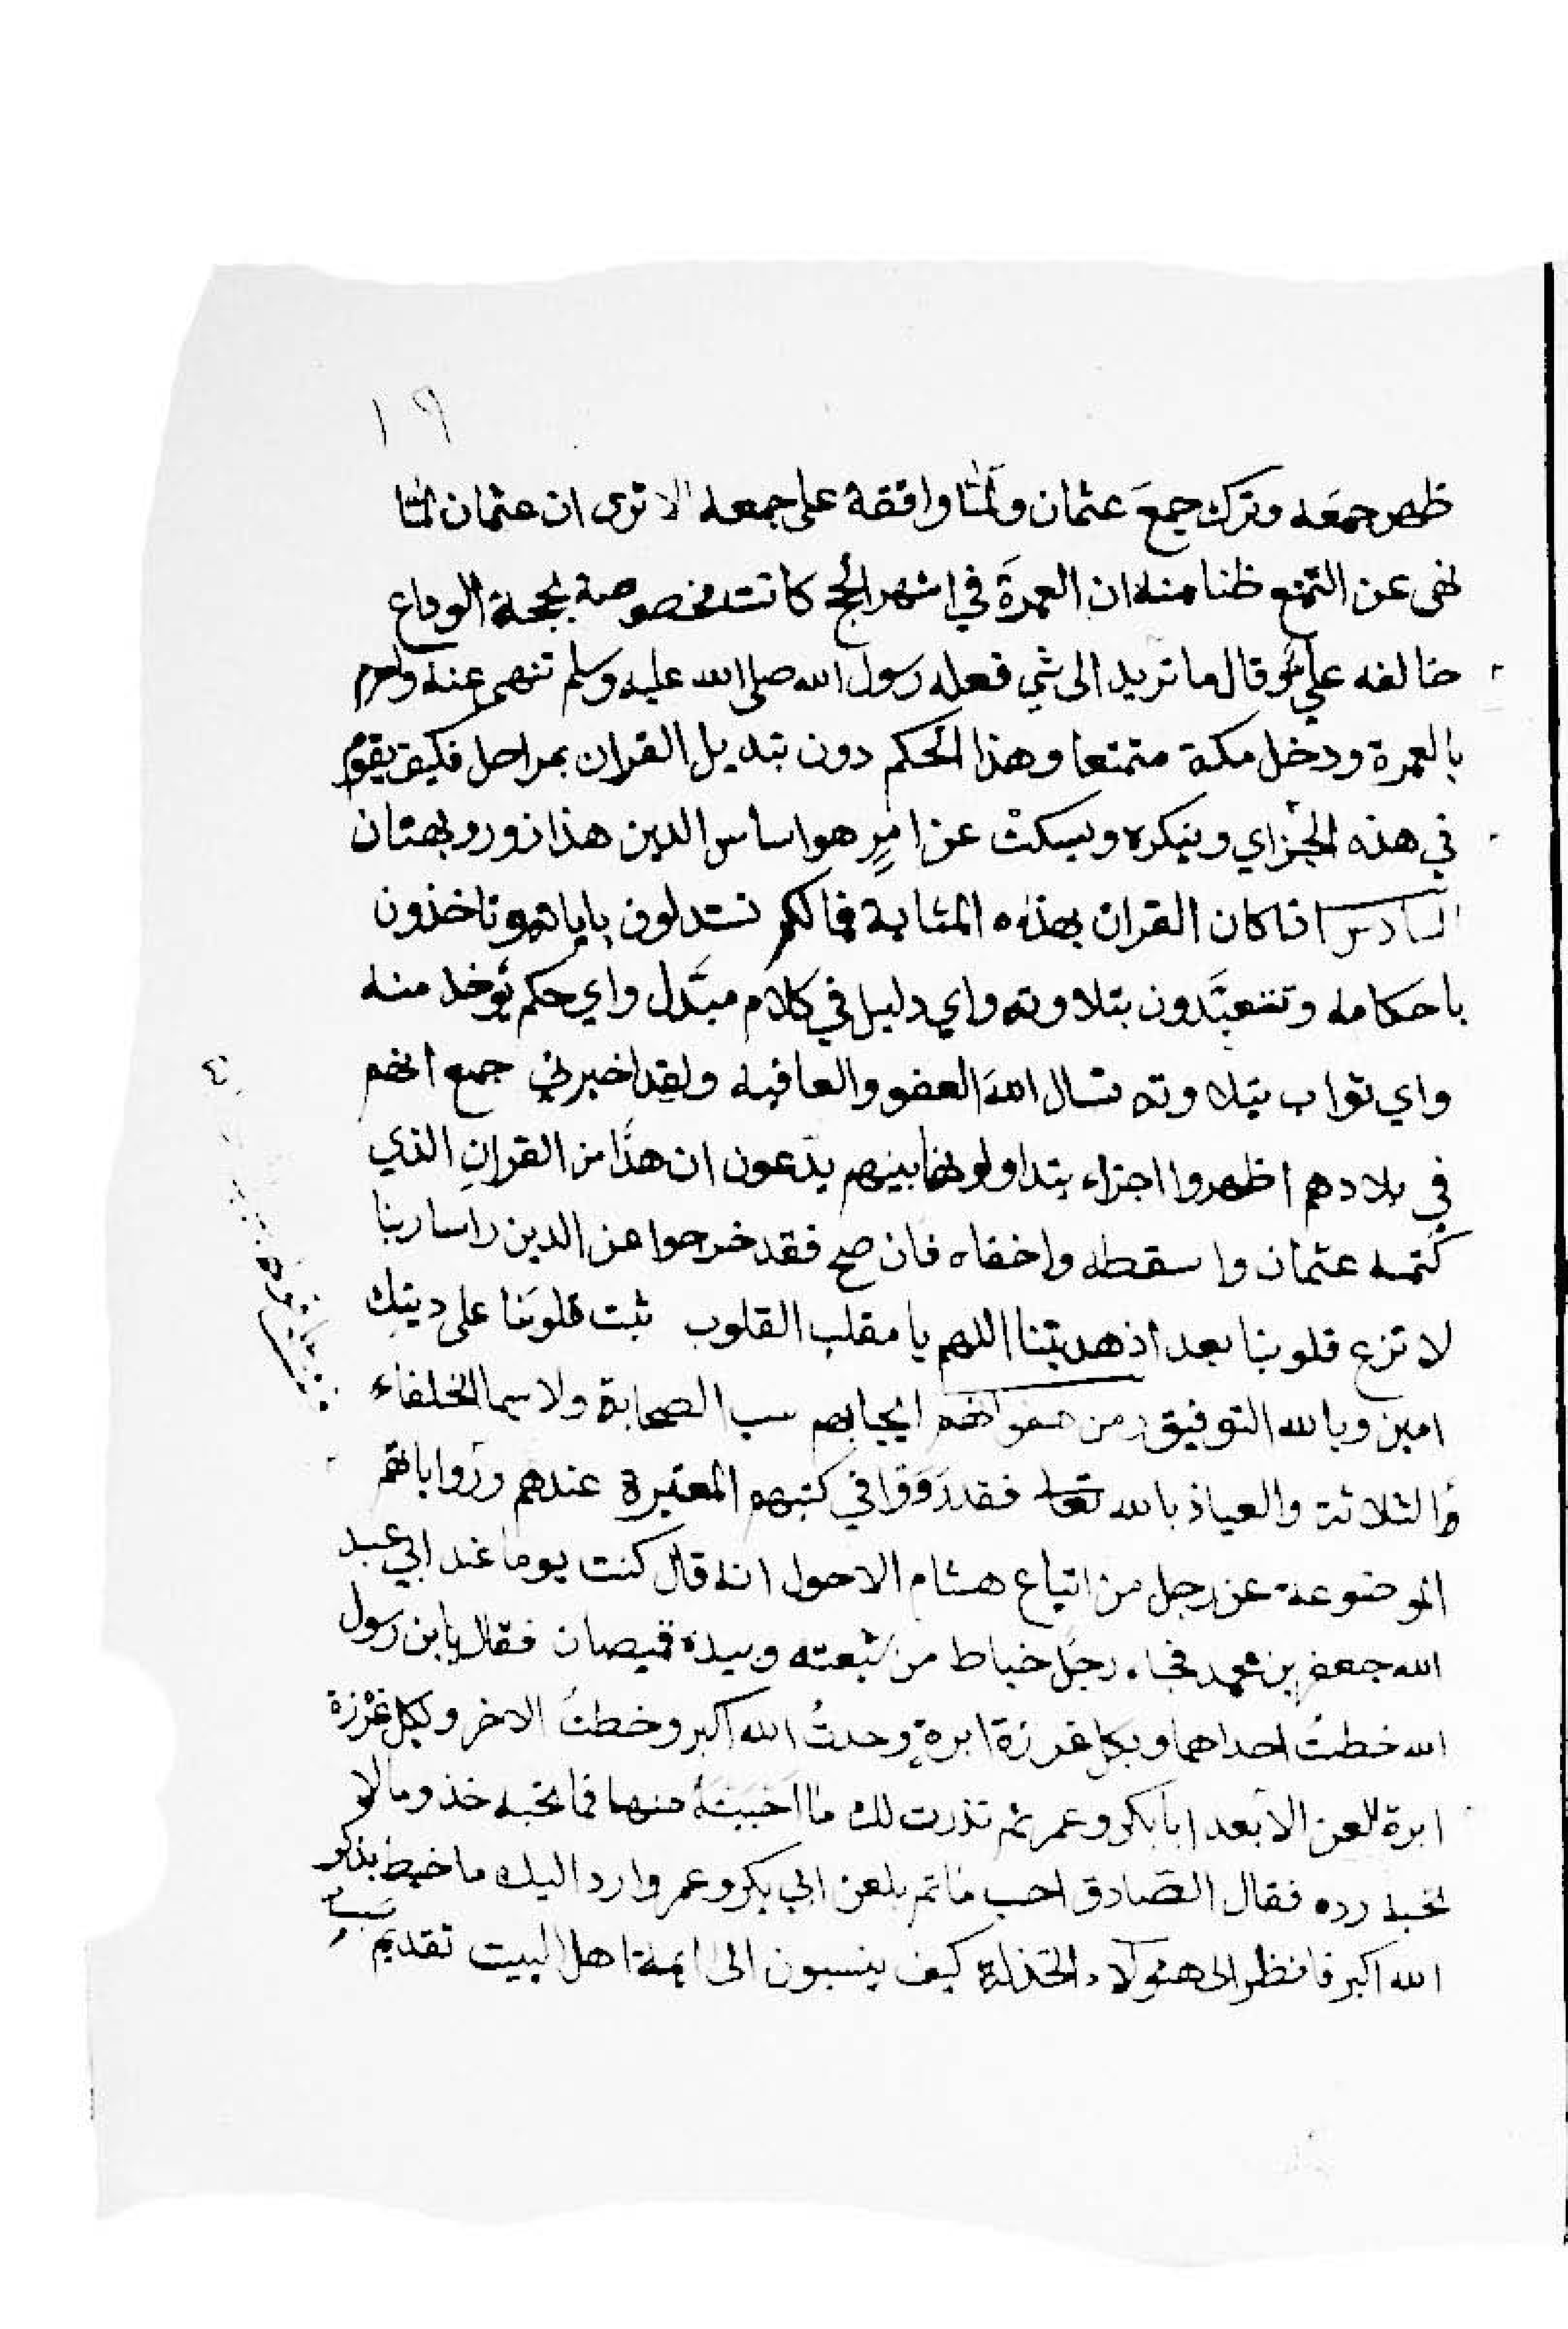 ١٩
ظهر جمعه وترك جمع عثمان ولما وافقه على جمعه الا ترى ان عثمان لما
نهى عن التمتع ظنا منه ان العمرة في اشهر الحج كانت مخصوصة بحجة الوداع
خالفه علي وقال ما تريد الى شي فعله رسول الله صلى الله عليه وسلم تنهى عنه واحرم
بالعمرة ودخل مكة متمتعا وهذا الحكم دون تبديل القران بمراحل فكيف يقوم
في هذه الجزاي وينكره ويسكت عن امر هو اساس الدين هذا زور وبهتان
السادس اذا كان القران بهذه المثابة فما لكم تستدلون باياته وتاخذون
باحكامه وتتعبدون بتلاوته واي دليل في كلام مبدل واي حكم يوخذ منه
واي ثواب بتلاوته نسال الله العفو والعافية ولقد اخبرني جمع انهم
في بلادهم اظهروا اجزاء يتداولونها بينهم يدعون ان هذا من القران الذي
كتمه عثمان واسقطه واخفاه فان صح فقد خرجوا عن الدين راسا ربنا
لا تزع قلوبنا بعد اذ هديتنا اللهم يا مقلب القلوب ثبت قلوبنا على دينك
امين وبالله التوفيق ومن هفواتهم ايجابهم سب الصحابة ولا سيما الخلفاء
والثلاثة والعياذ بالله تعالى فقد رووا في كتبهم المعتبرة عندهم ورواياتهم
الموضوعة عن رجل من اتباع هشام الاحول انه قال كنت يوما عند ابي عبد
الله جعفر بن محمد فجاء رجل خياط من شيعته وبيده قميصان فقال يا بن رسول
الله خطت احداهما وبكل غرزة ابرة وحدت الله اكبر وخطت الاخر وبكل غرزة
ابرة لعن الابعد ابا بكر وعمر ثم نذرت لك ما احببته منهما فما تحبه خذ وما لا
تحبه رده فقال الصادق احب ما تم بلعن ابي بكر وعمر وارد اليك ما خيط بذكر
الله اكبر فانظر الى هئولاء الخذلة كيف ينسبون الى ايمة اهل البيت تقديم
سب